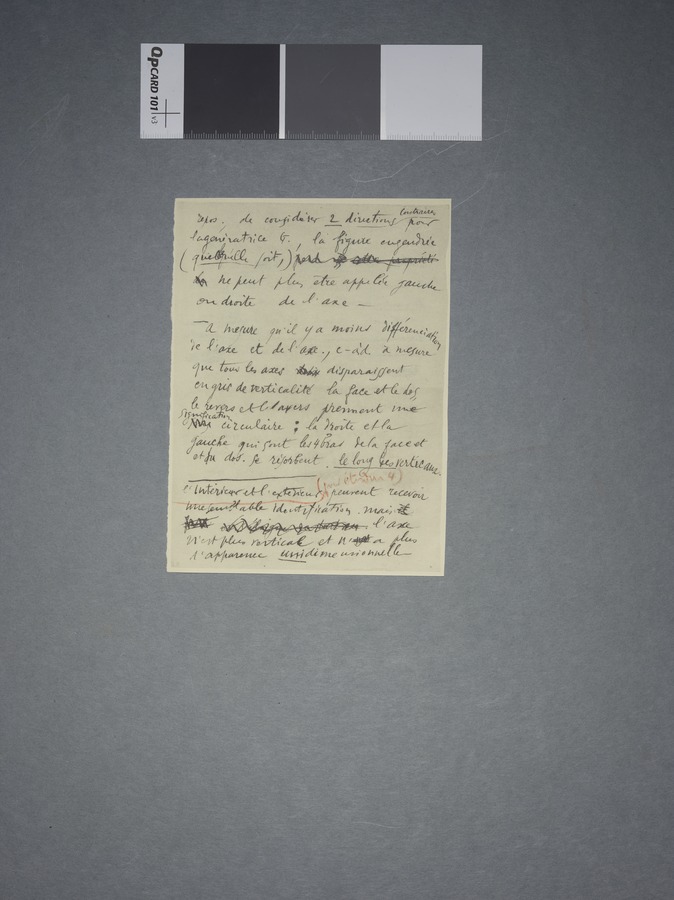 QPCARD 101 v3
repos, de considérer 2 directions contraires pour
la génératrice G., la figure engendrée
(quelle qu'elle soit,)
ne peut plus être appelée gauche
ou droite de l'axe —
— A mesure qu'il y a moins différenciation
de l'axe et de l'axe., c-à d à mesure
que tous les axes disparaissent
en gris de verticalité la face et le dos,
le revers et l'envers prennent une
signification circulaire : la droite et la
gauche qui sont les 4 bras de la face et
et du dos. se résorbent. le long des verticaux.
l'intérieur et l'extérieur (pour étendue 4) peuvent recevoir
une semblable identification. mais
l'axe
n'est plus vertical et n'a plus
l'apparence unidimensionnelle